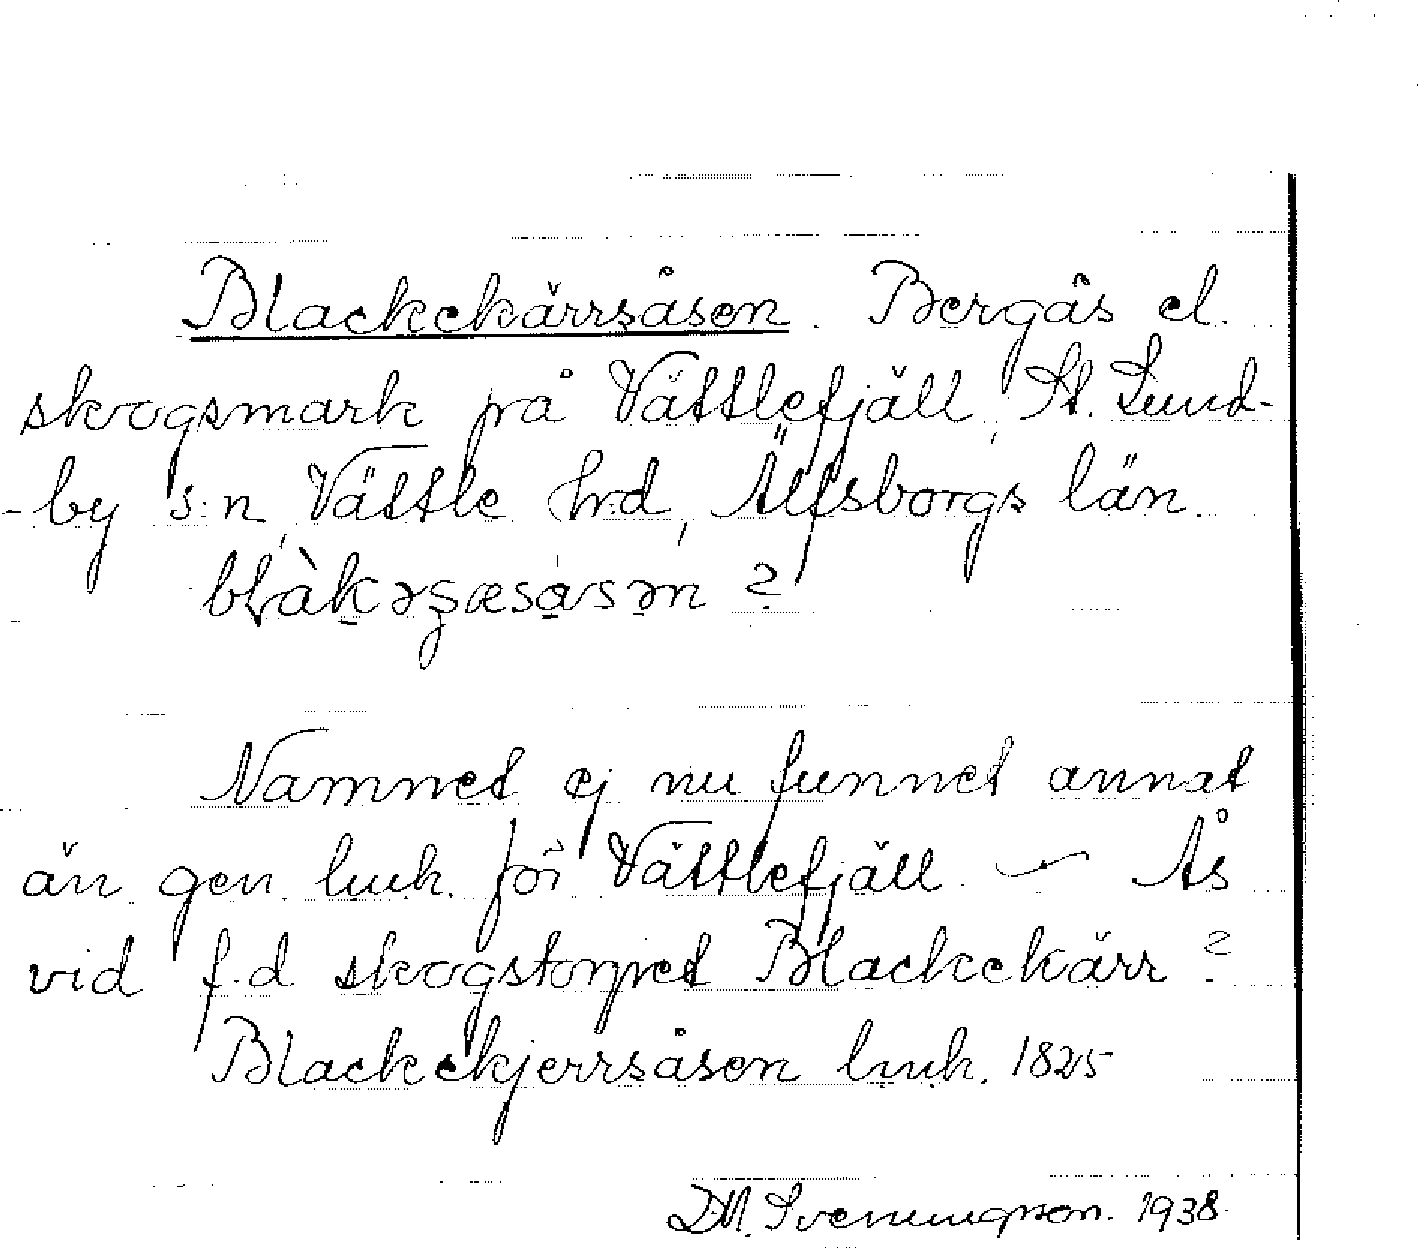 Blackekärrsåsen. Bergås el.
skogsmark på Vättlefjäll, St. Lund-
-by s:n, Vättle hrd, Älfsborgs län.
Namnet ej nu funnet annat
än gen. luuk. för Vättlefjäll. – Ås
vid f.d. skogstorpet Blackekärr?
Blackekjerrsåsen luuk. 1825
D.M. Svenungsson. 1938